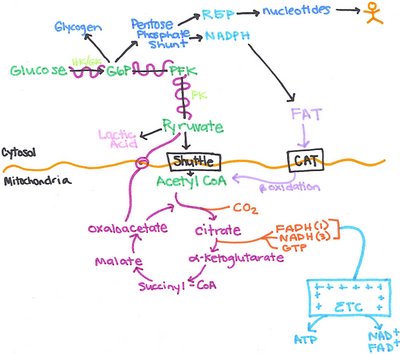 Glycogen
Pentose
Phosphate
Shunt
R5P
nucleotides
NADPH
Glucose
HK/GK
G6P
PFK
PK
FAT
Lactic
Acid
Pyruvate
Cytosol
Mitochondria
Shuttle
CAT
Acetyl CoA
β oxidation
CO2
oxaloacetate
citrate
FADH (1)
NADH (3)
GTP
Malate
α-ketoglutarate
Succinyl-CoA
+ + + + + +
+ +
+ + ETC + +
ATP
NAD+
FAD+